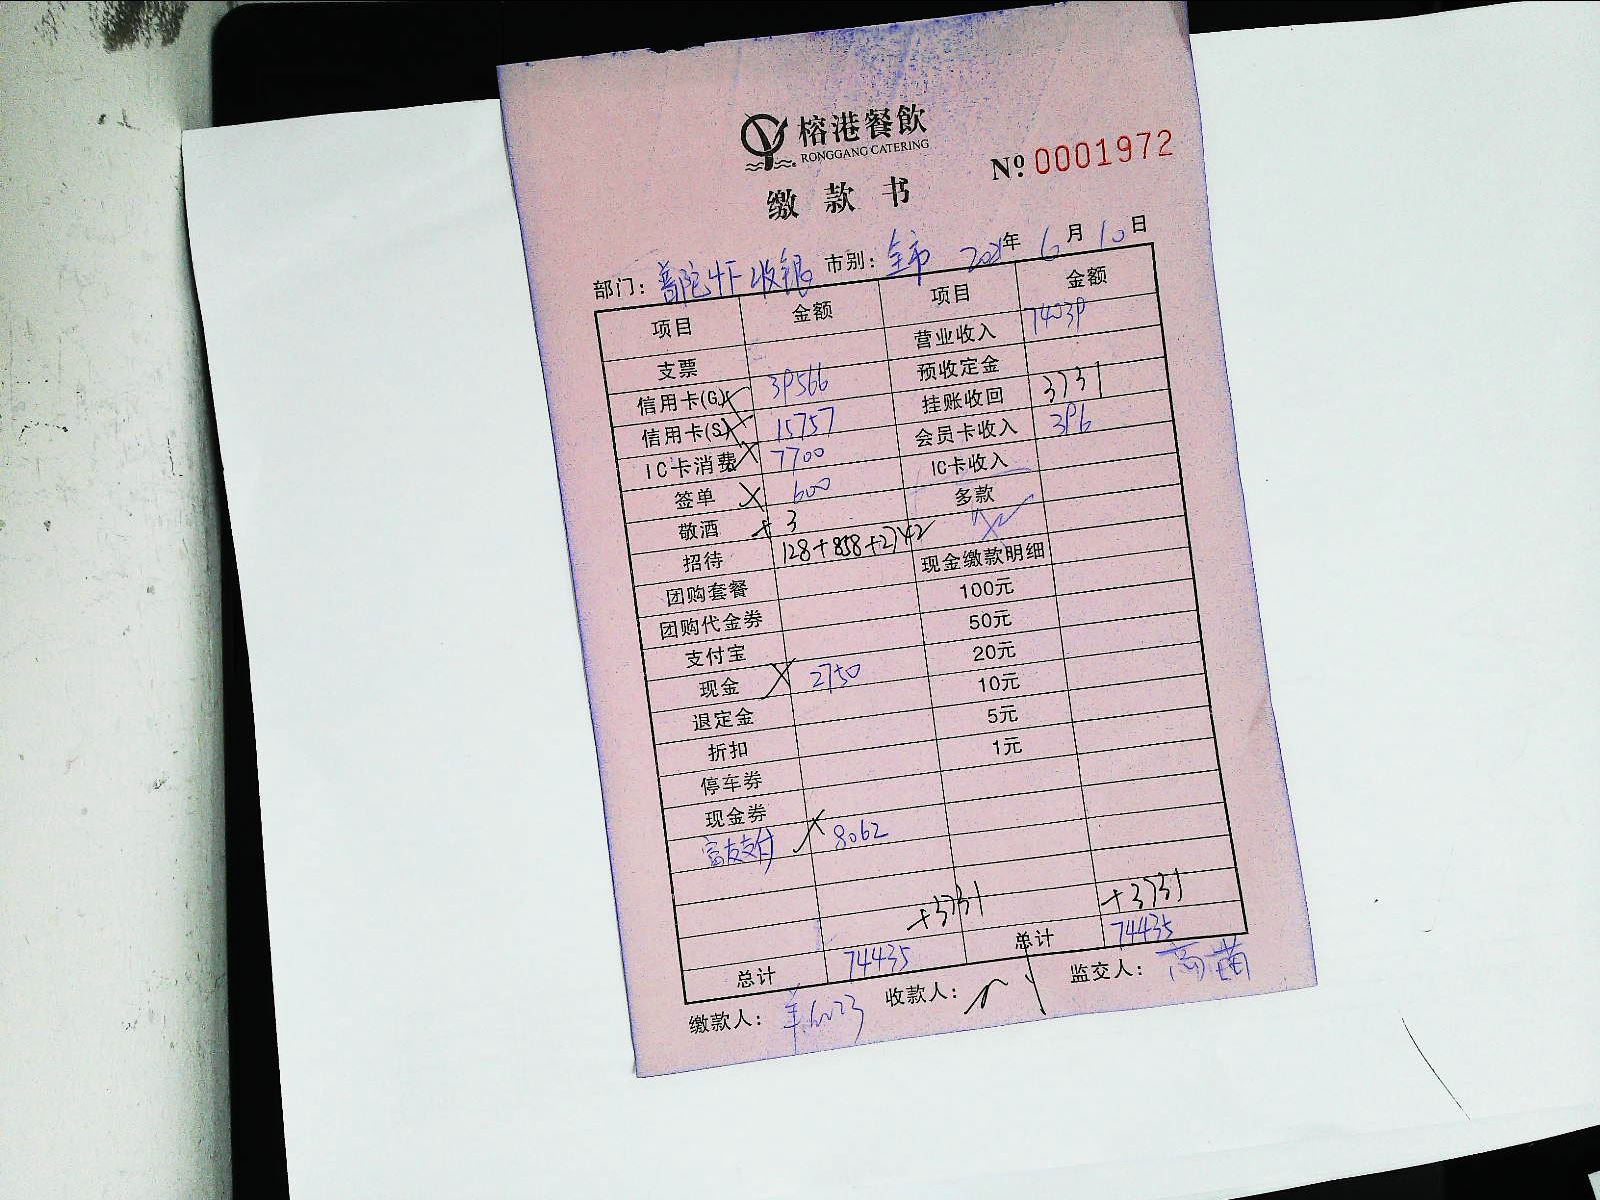 榕港餐飲
RONGGANG CATERING
缴款书
Nº 0001972
部门: 普陀虾收银 市别: 全市 2021年 6月 10日
项目 金额 项目 金额
支票 营业收入 74039
信用卡(G) 39566 预收定金
信用卡(S) 15757 挂账收回 3731
IC卡消费 7700 会员卡收入 396
签单 600 IC卡收入
敬酒 +3 多款
招待 128+858+2742 现金缴款明细
团购套餐 100元
团购代金券 50元
支付宝 20元
现金 2750 10元
退定金 5元
折扣 1元
停车券
现金券
富友支付 8062
+3731 +3731
总计 74435 总计 74435
缴款人: 收款人: 监交人: 高茜